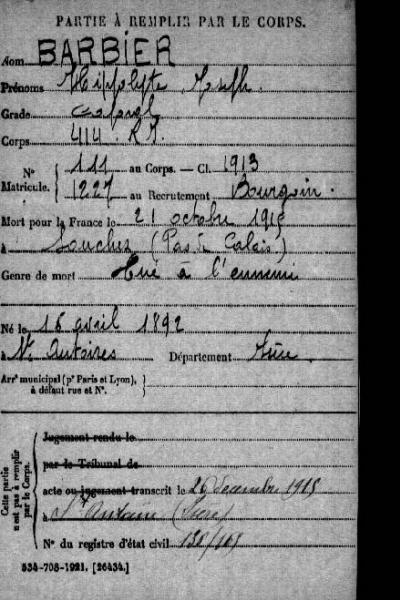 PARTIE À REMPLIR PAR LE CORPS.
Nom BARBIER
Prénoms Hippolyte Joseph.
Grade Caporal
Corps 414 R.I.
N° Matricule. { 111 au Corps. — Cl. 1913
1227 au Recrutement Bourgoin.
Mort pour la France le 21 octobre 1915
à Souchez (Pas de Calais)
Genre de mort Tué à l'ennemi
Né le 16 avril 1892
à St Département Isère.
Arrt municipal (pr Paris et Lyon), à défaut rue et N°. }
Cette partie n'est pas à remplir par le Corps.
Jugement rendu le
par le Tribunal de
acte ou jugement transcrit le 26 décembre 1915
à St (Isère)
N° du registre d'état civil
534-708-1921. [26434.]